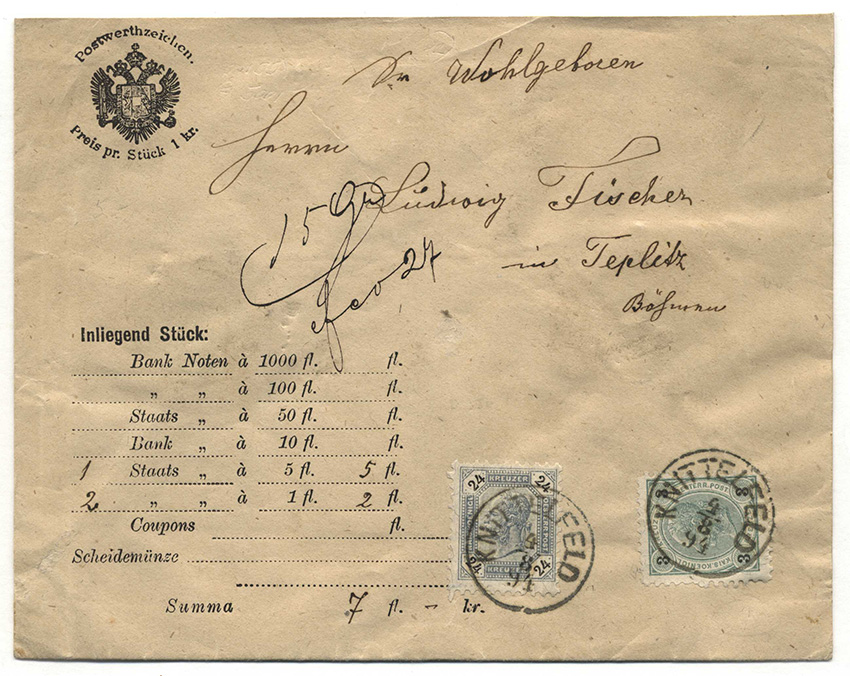 Postwerthzeichen.
Preis pr. Stück 1 kr.
Sr Wohlgeboren
Herrn
Ludwig Fischer
in Teplitz
Böhmen
15 Gr
fco 27
Inliegend Stück:
Bank Noten à 1000 fl. fl.
„ „ à 100 fl. fl.
Staats „ à 50 fl. fl.
Bank „ à 10 fl. fl.
1 Staats „ à 5 fl. 5 fl.
2 „ „ à 1 fl. 2 fl.
Coupons fl.
Scheidemünze
Summa 7 fl. - kr.
24 KREUZER 24
24 KREUZER 24
KNITTELFELD
4
8
94
3 3
3 3
KNITTELFELD
4
8
94